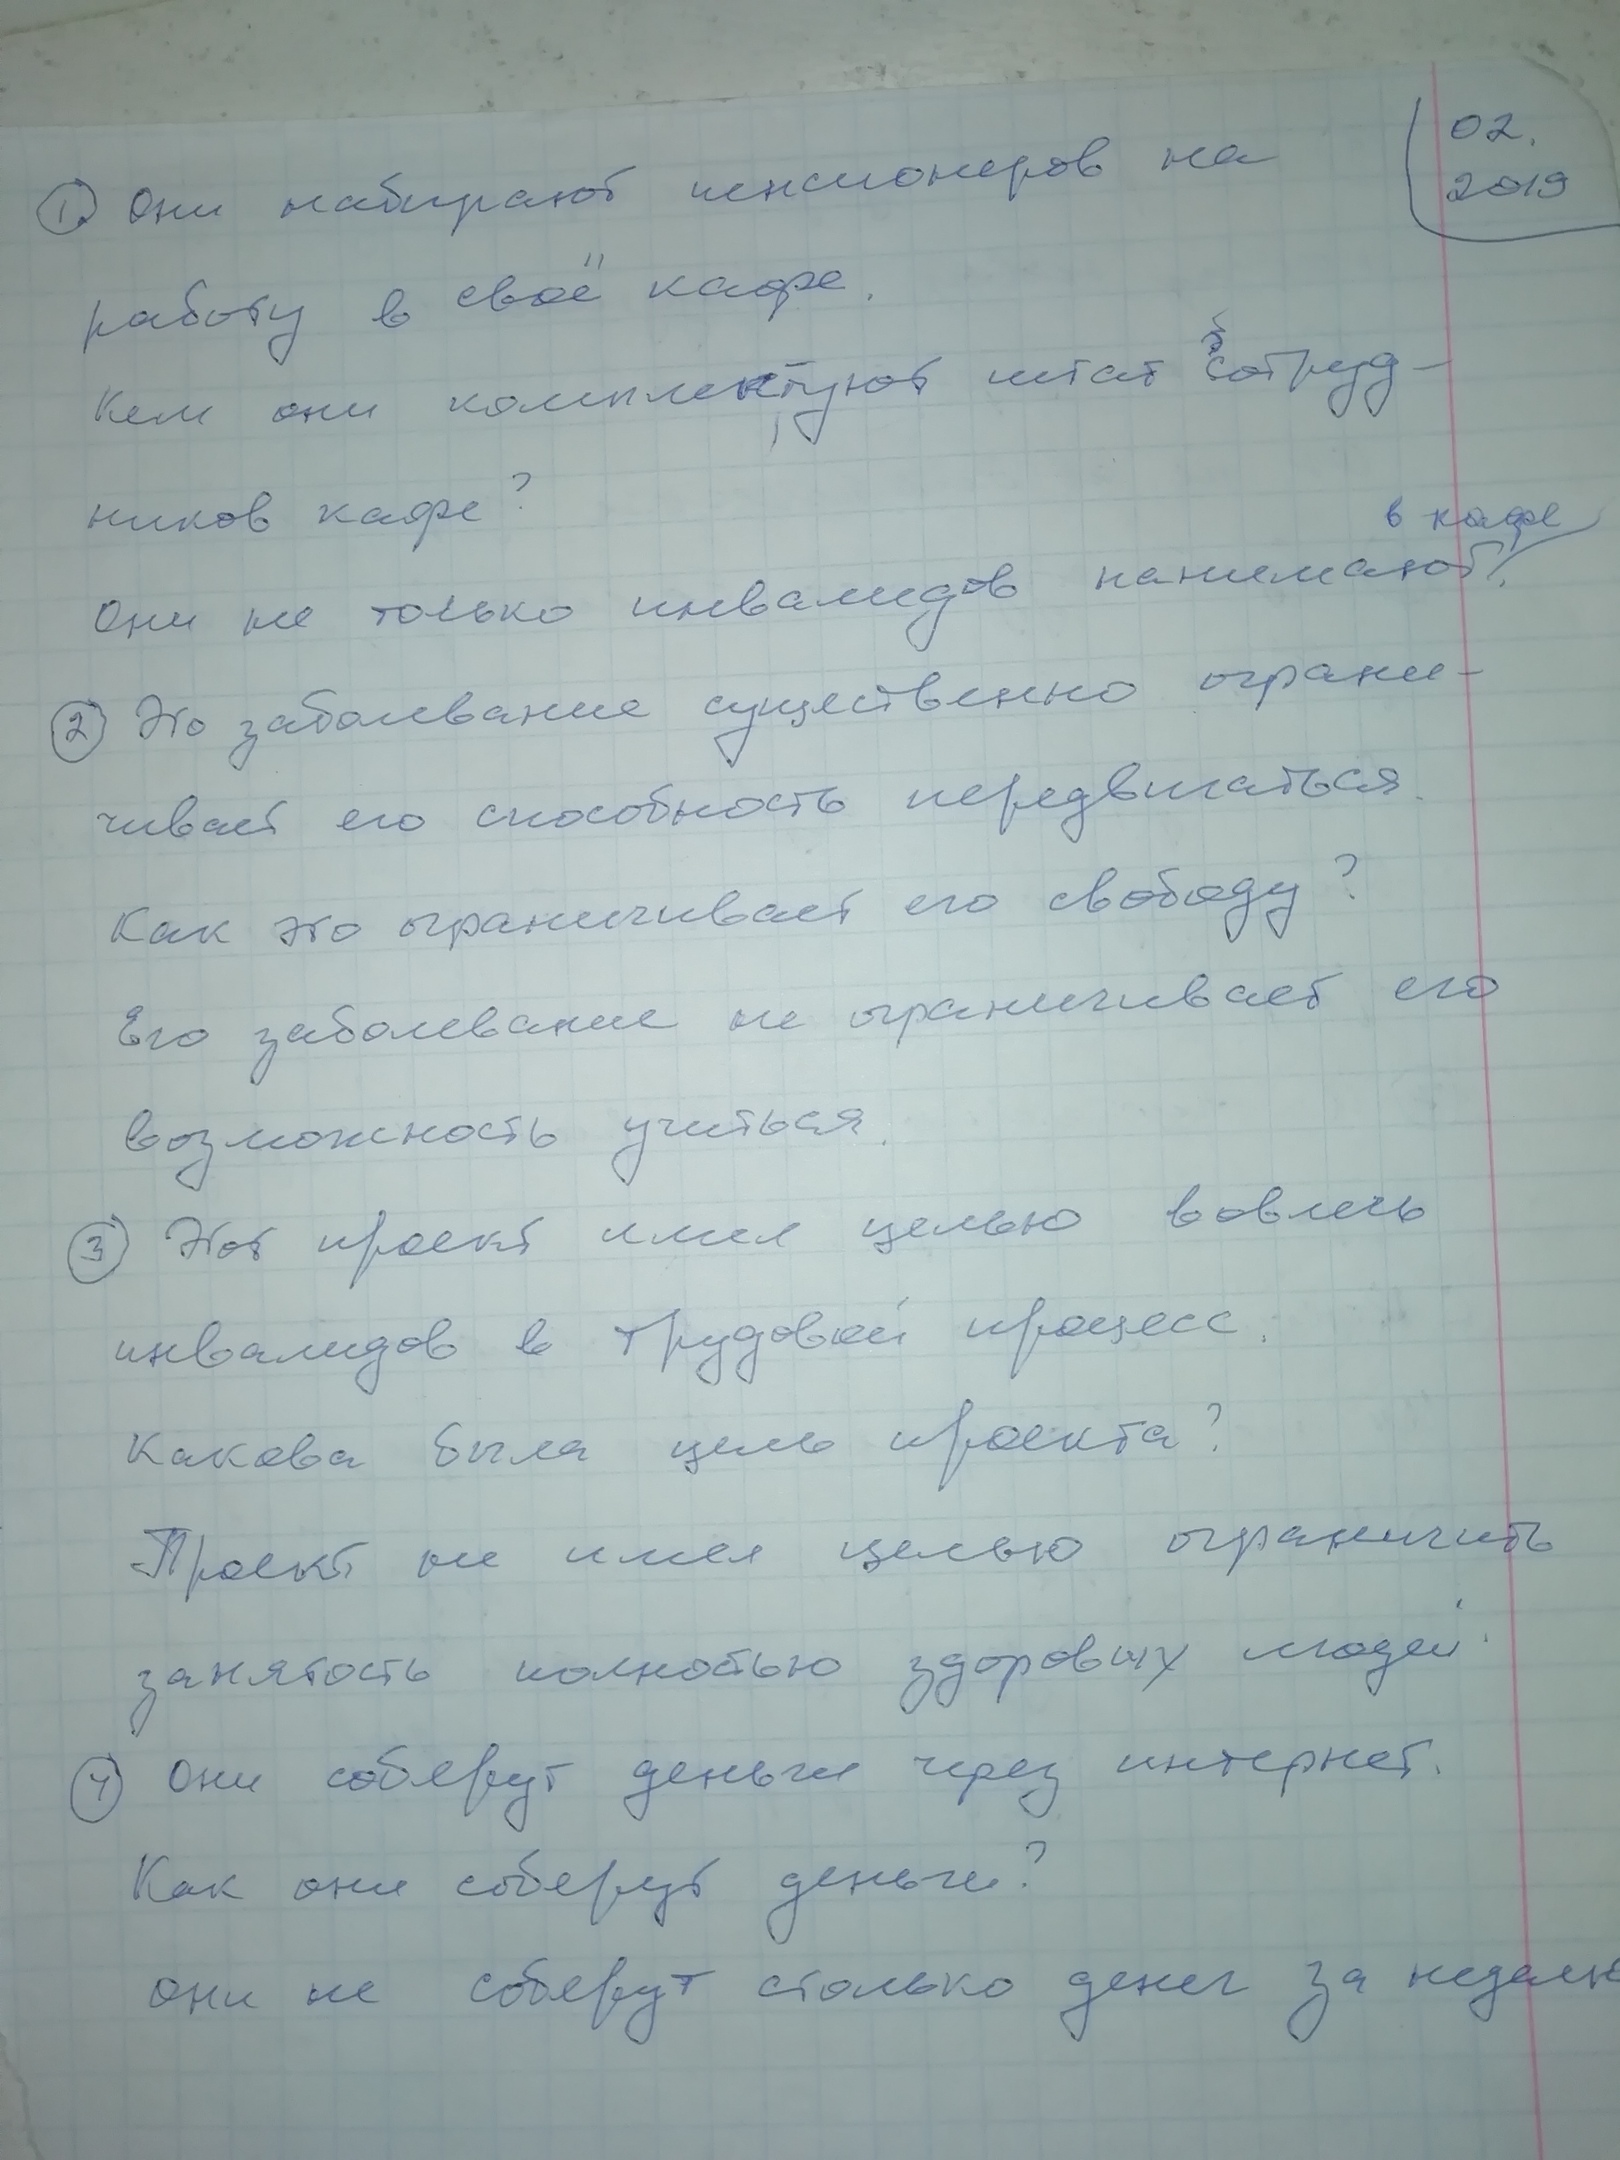 02.
2019
① Они набирают пенсионеров на
работу в своё кафе.
Кем они комплектуют штат сотруд-
ников кафе?
в кафе
Они не только инвалидов нанимают.
② Это заболевание существенно ограни-
чивает его способность передвигаться.
Как это ограничивает его свободу?
Его заболевание не ограничивает его
возможность учиться.
③ Этот проект имел целью вовлечь
инвалидов в трудовой процесс.
Какова была цель проекта?
Проект не имел целью ограничить
занятость полностью здоровых людей.
④ Они соберут деньги через интернет.
Как они соберут деньги?
они не соберут столько денег за неделю